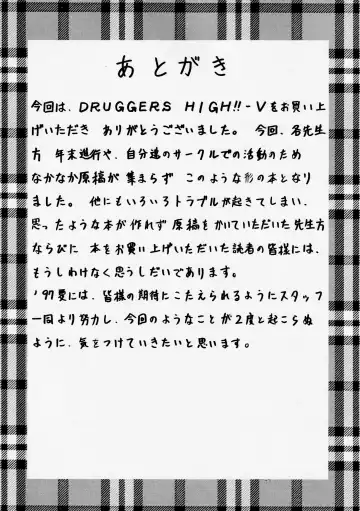 あとがき
今回は、DRUGGERS HIGH!!-Vをお買い上
げいただき ありがとうございました。 今回、各先生
方 年末進行や、自分達のサークルでの活動のため
なかなか原稿が 集まらず このような形の本となり
ました。 他にもいろいろトラブルが起きてしまい、
思ったような本が作れず 原稿をかいていただいた先生方
ならびに 本をお買い上げいただいた読者の皆様には、
もうしわけなく思うしだいであります。
'97夏には、皆様の期待にこたえられるようにスタッフ
一同より努力し、今回のようなことが2度と起こらぬ
ように、気をつけていきたいと思います。